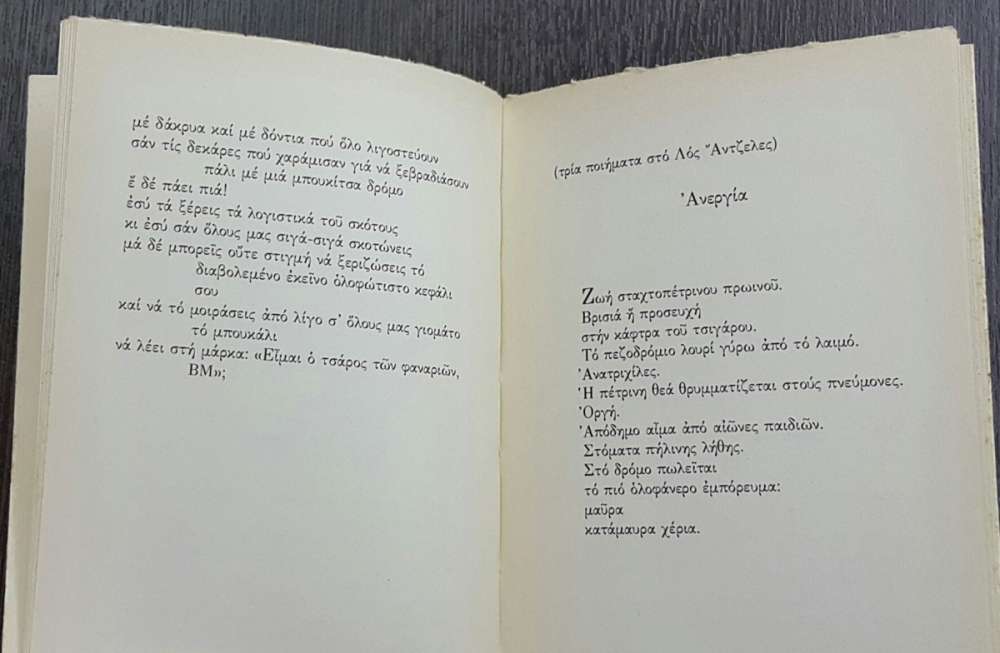 μέ δάκρυα καί μέ δόντια πού ὅλο λιγοστεύουν
σάν τίς δεκάρες πού χαράμισαν γιά νά ξεβραδιάσουν
πάλι μέ μιά μπουκίτσα δρόμο
ἔ δέ πάει πιά!
ἐσύ τά ξέρεις τά λογιστικά τοῦ σκότους
κι ἐσύ σάν ὅλους μας σιγά-σιγά σκοτώνεις
μά δέ μπορεῖς οὔτε στιγμή νά ξεριζώσεις τό
διαβολεμένο ἐκεῖνο ὁλοφώτιστο κεφάλι
σου
καί νά τό μοιράσεις ἀπό λίγο σ' ὅλους μας γιομάτο
τό μπουκάλι
νά λέει στή μάρκα: «Εἶμαι ὁ τσάρος τῶν φαναριῶν,
ΒΜ»;
(τρία ποιήματα στό Λός Ἄντζελες)
Ἀνεργία
Ζωή σταχτοπέτρινου πρωινοῦ.
Βρισιά ἤ προσευχή
στήν κάφτρα τοῦ τσιγάρου.
Τό πεζοδρόμιο λουρί γύρω ἀπό τό λαιμό.
Ἀνατριχίλες.
Ἡ πέτρινη θεά θρυμματίζεται στούς πνεύμονες.
Ὀργή.
Ἀπόδημο αἷμα ἀπό αἰῶνες παιδιῶν.
Στόματα πήλινης λήθης.
Στό δρόμο πωλεῖται
τό πιό ὁλοφάνερο ἐμπόρευμα:
μαῦρα
κατάμαυρα χέρια.